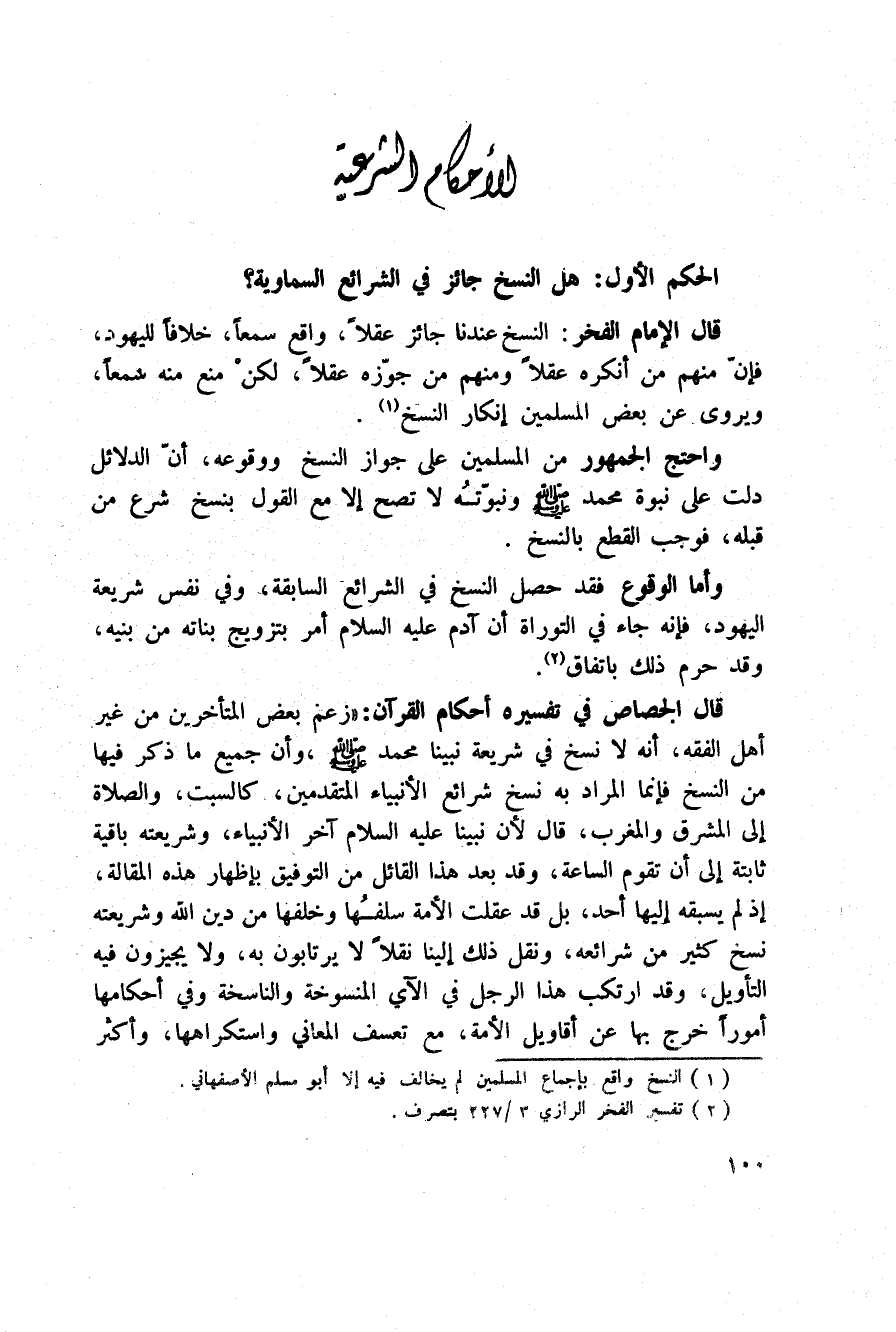 الأحكام الشرعية
الحكم الأول: هل النسخ جائز في الشرائع السماوية؟
قال الإمام الفخر: النسخ عندنا جائز عقلاً، واقع سمعاً، خلافاً لليهود،
فإنّ منهم من أنكره عقلاً ومنهم من جوّزه عقلاً، لكنْ منع منه سمعاً،
ويروى عن بعض المسلمين إنكار النسخ(١) .
واحتج الجمهور من المسلمين على جواز النسخ ووقوعه، أنّ الدلائل
دلت على نبوة محمد ﷺ ونبوّتـُه لا تصح إلا مع القول بنسخ شرع من
قبله، فوجب القطع بالنسخ .
وأما الوقوع فقد حصل النسخ في الشرائع السابقة، وفي نفس شريعة
اليهود، فإنه جاء في التوراة أن آدم عليه السلام أمر بتزويج بناته من بنيه،
وقد حرم ذلك باتفاق(٢).
قال الجصاص في تفسيره أحكام القرآن: «زعم بعض المتأخرين من غير
أهل الفقه، أنه لا نسخ في شريعة نبينا محمد ﷺ ،وأن جميع ما ذكر فيها
من النسخ فإنما المراد به نسخ شرائع الأنبياء المتقدمين، كالسبت، والصلاة
إلى المشرق والمغرب، قال لأن نبينا عليه السلام آخر الأنبياء، وشريعته باقية
ثابتة إلى أن تقوم الساعة، وقد بعد هذا القائل من التوفيق بإظهار هذه المقالة،
إذ لم يسبقه إليها أحد، بل قد عقلت الأمة سلفـُها وخلفها من دين الله وشريعته
نسخ كثير من شرائعه، ونقل ذلك إلينا نقلاً لا يرتابون به، ولا يجيزون فيه
التأويل، وقد ارتكب هذا الرجل في الآي المنسوخة والناسخة وفي أحكامها
أموراً خرج بها عن أقاويل الأمة، مع تعسف المعاني واستكراهها، وأكثر
( ١ ) النسخ واقع بإجماع المسلمين لم يخالف فيه إلا أبو مسلم الأصفهاني .
( ٢ ) تفسير الفخر الرازي ٣ /٢٢٧ بتصرف .
١٠٠